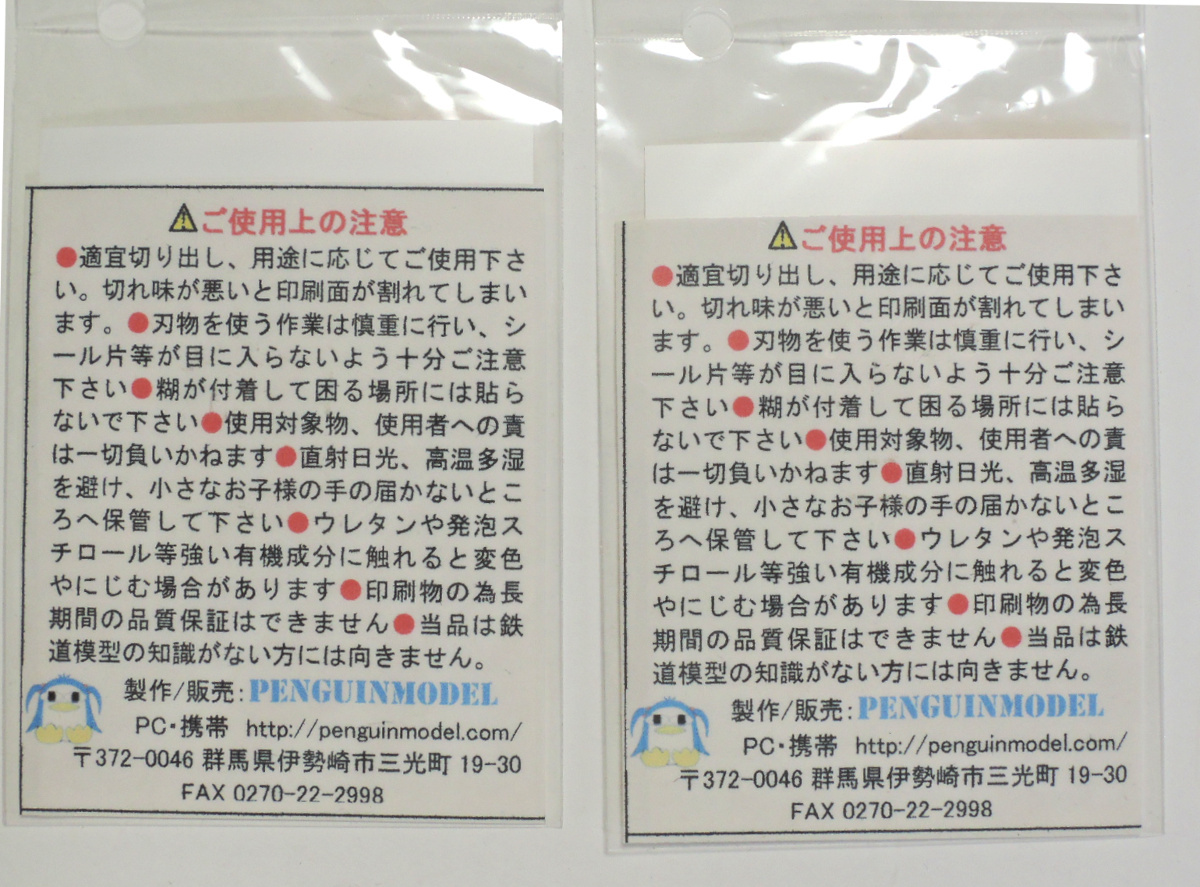 ⚠ご使用上の注意
●適宜切り出し、用途に応じてご使用下さ
い。切れ味が悪いと印刷面が割れてしまい
ます。●刃物を使う作業は慎重に行い、シ
ール片等が目に入らないよう十分ご注意
下さい●糊が付着して困る場所には貼ら
ないで下さい●使用対象物、使用者への責
は一切負いかねます●直射日光、高温多湿
を避け、小さなお子様の手の届かないとこ
ろへ保管して下さい●ウレタンや発泡ス
チロール等強い有機成分に触れると変色
やにじむ場合があります●印刷物の為長
期間の品質保証はできません●当品は鉄
道模型の知識がない方には向きません。
製作/販売:PENGUINMODEL
PC・携帯 http://penguinmodel.com/
〒372-0046 群馬県伊勢崎市三光町 19-30
FAX 0270-22-2998
⚠ご使用上の注意
●適宜切り出し、用途に応じてご使用下さ
い。切れ味が悪いと印刷面が割れてしまい
ます。●刃物を使う作業は慎重に行い、シ
ール片等が目に入らないよう十分ご注意
下さい●糊が付着して困る場所には貼ら
ないで下さい●使用対象物、使用者への責
は一切負いかねます●直射日光、高温多湿
を避け、小さなお子様の手の届かないとこ
ろへ保管して下さい●ウレタンや発泡ス
チロール等強い有機成分に触れると変色
やにじむ場合があります●印刷物の為長
期間の品質保証はできません●当品は鉄
道模型の知識がない方には向きません。
製作/販売:PENGUINMODEL
PC・携帯 http://penguinmodel.com/
〒372-0046 群馬県伊勢崎市三光町 19-30
FAX 0270-22-2998